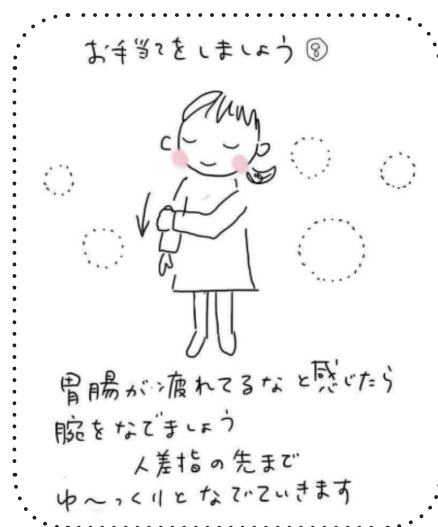 お手当てをしましょう⑧
胃腸が疲れてるなと感じたら
腕をなでましょう
人差指の先まで
ゆ〜っくりとなでていきます